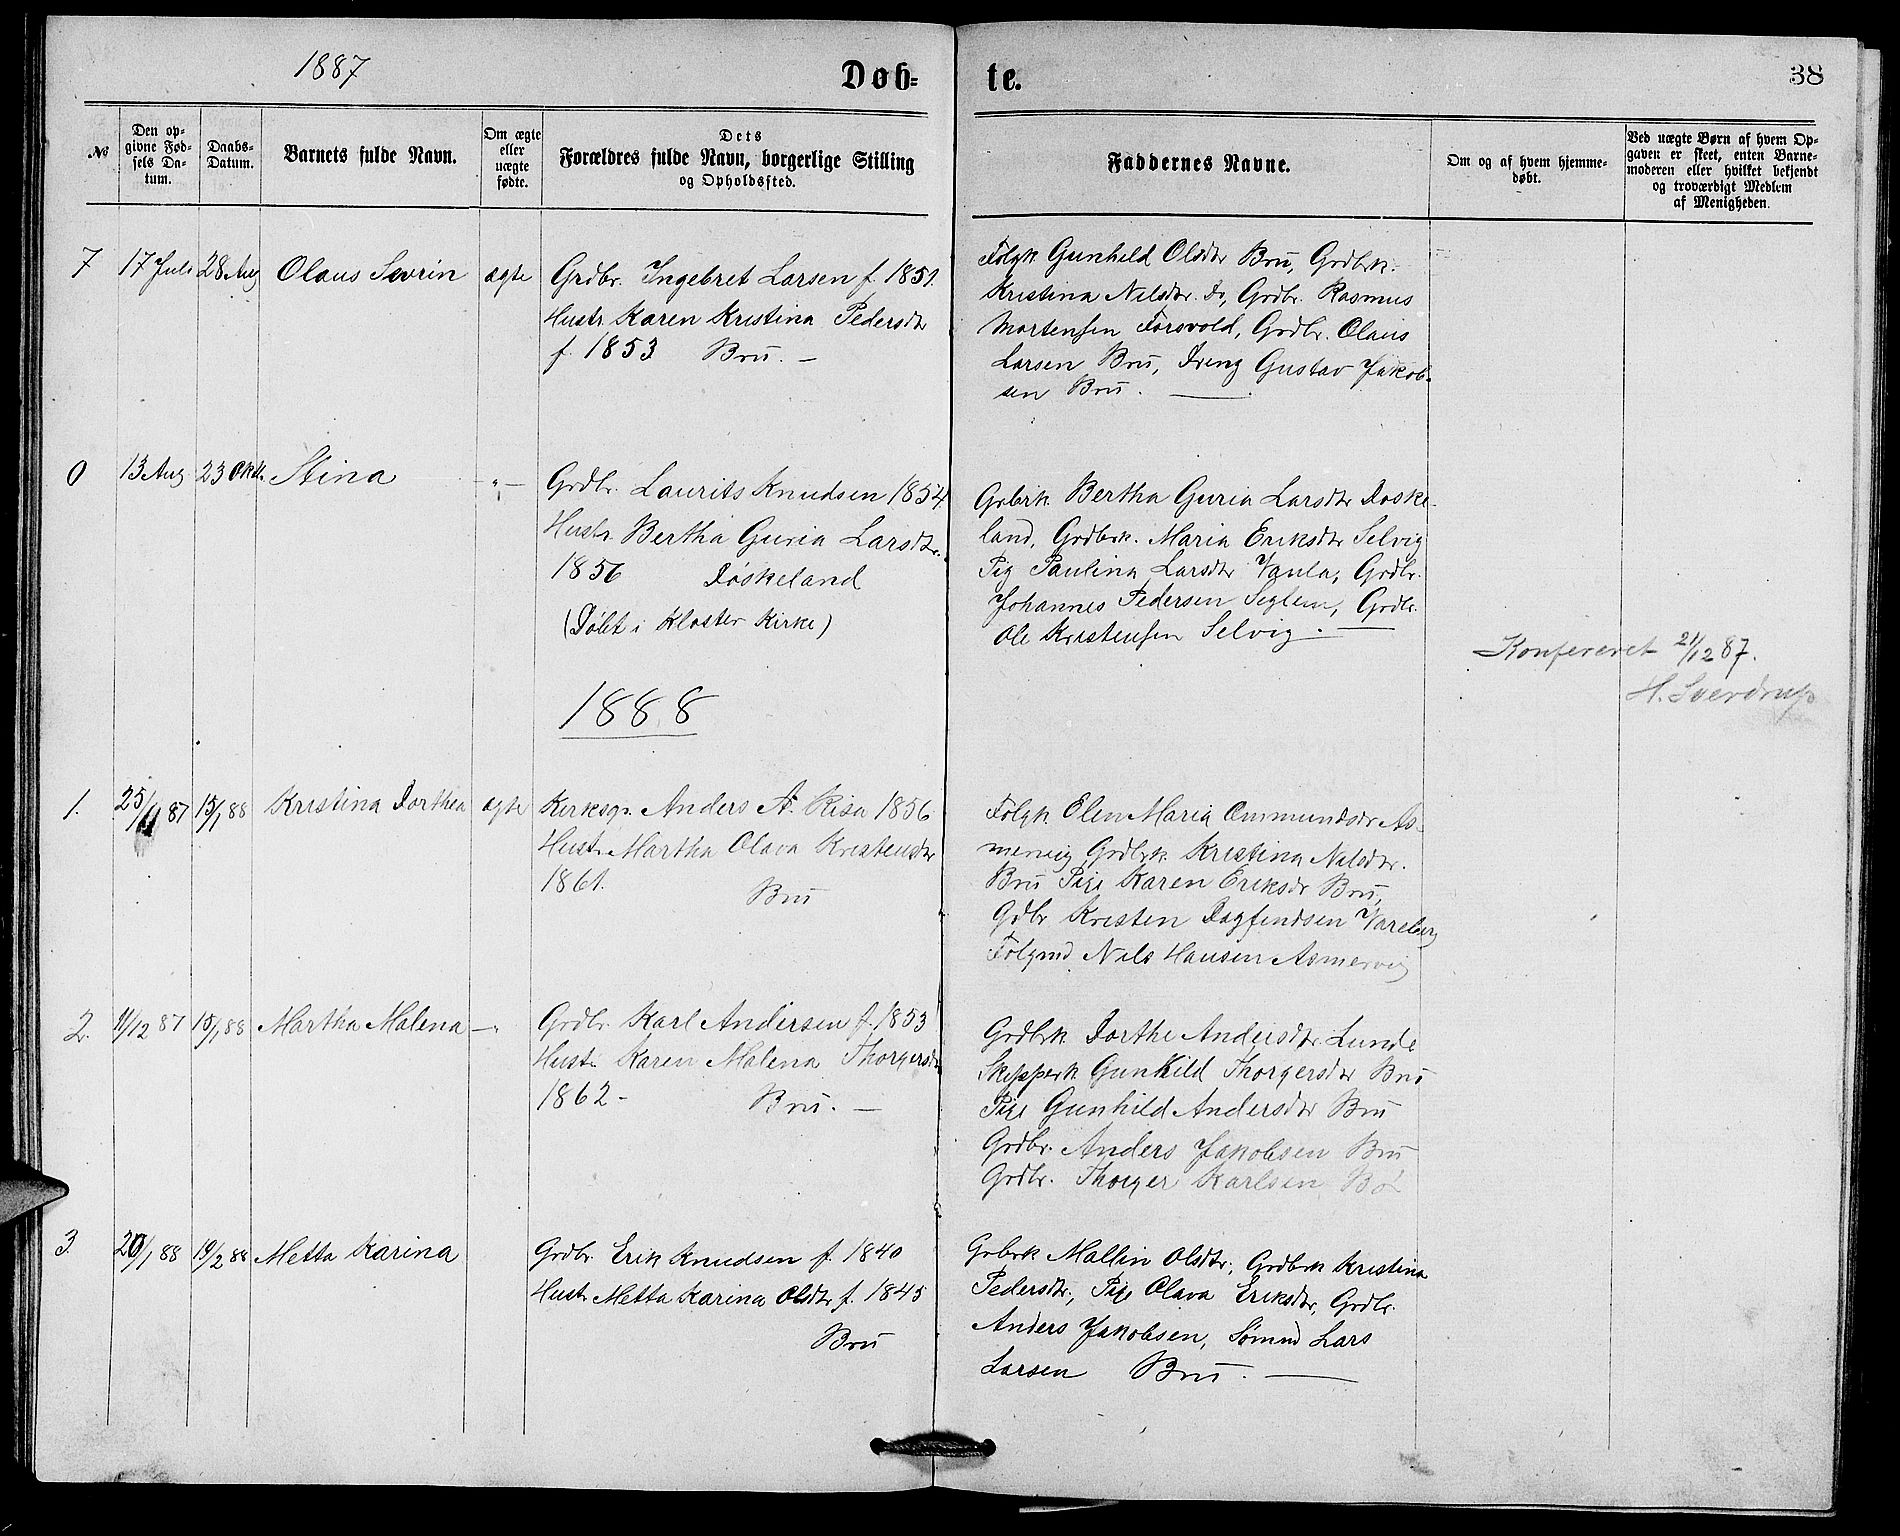 1887
Døb-
te.
38
No
Den op-
givne Fød-
sels Da-
tum.
Daabs-
Datum.
Barnets fulde Navn.
Om ægte
eller
uægte
fødte.
Dets
Forældres fulde Navn, borgerlige Stilling
og Opholdssted.
Faddernes Navne.
Om og af hvem hjemme-
døbt.
Ved uægte Børn af hvem Op-
gaven er skeet, enten Barne-
moderen eller hvilket bekjendt
og troværdigt Medlem
af Menigheden.
7 17 Juli 28 Aug Olaus Severin ægte
Grdbr. Ingebret Larsen f. 1851.
Hustr. Karen Kristina Pedersdtr
f. 1853 Bru. —
Følgk Gunhild Olsdtr Bru, Grdbrk.
Kristina Nilsdtr. Do, Grdbr. Rasmus
Mortensen Forsvold, Grdbr. Olaus
Larsen Bru, Dreng Gustav Jakob-
sen Bru. —
0 13 Aug 23 Oktb. Stina "—
Grdbr. Laurits Knudsen 1854.
Hustr. Bertha Guria Larsdtr.
1856 Døskeland
(Døbt i Kloster Kirke)
Grbrk. Bertha Guria Larsdtr Døske-
land, Grdbrk. Maria Eriksdtr Selvig
Pig Paulina Larsdtr Vaula, Grdbr.
Johannes Pedersen Seglem, Grdbr.
Ole Kristensen Selvig. —
Konfereret 21/12 87.
H. Sverdrup
1888
1. 25/11 87 15/1 88 Kristina Dorthea ægte
Kirksgr. Anders A. Risa 1856
Hustr. Martha Olava Kristensdtr
1861. Bru
Følgk. Elen Maria Ommundsdr As-
mervig Grdbrk. Kristina Nilsdtr.
Bru Pige Karen Eriksdr Bru,
Gdbr Kristen Dagfindsen Vareberg
Følgmd Nils Hansen Asmervig
2. 11/12 87 15/1 88 Martha Malena —"
Grdbr. Karl Andersen f. 1853
Hustr. Karen Malena Thorgersdtr
1862 - Bru. —
Grdbrk Dorthe Andersdtr. Lunde
Skipperk Gunhild Thorgersdtr Bru
Pige Gunhild Andersdtr Bru
Grdbr. Anders Jakobsen Bru
Grdbr. Thorger Karlsen Bø
3. 20/1 88 19/2 88 Metta Karina
Grdbr. Erik Knudsen f. 1840
Hustr Metta Karina Olsdtr f. 1845
Bru
Grbrk Mallin Olsdtr, Grdbrk Kristina
Pedersdtr, Pige Olava Eriksdtr, Grdbr.
Anders Jakobsen, Sømnd Lars
Larsen Bru. —